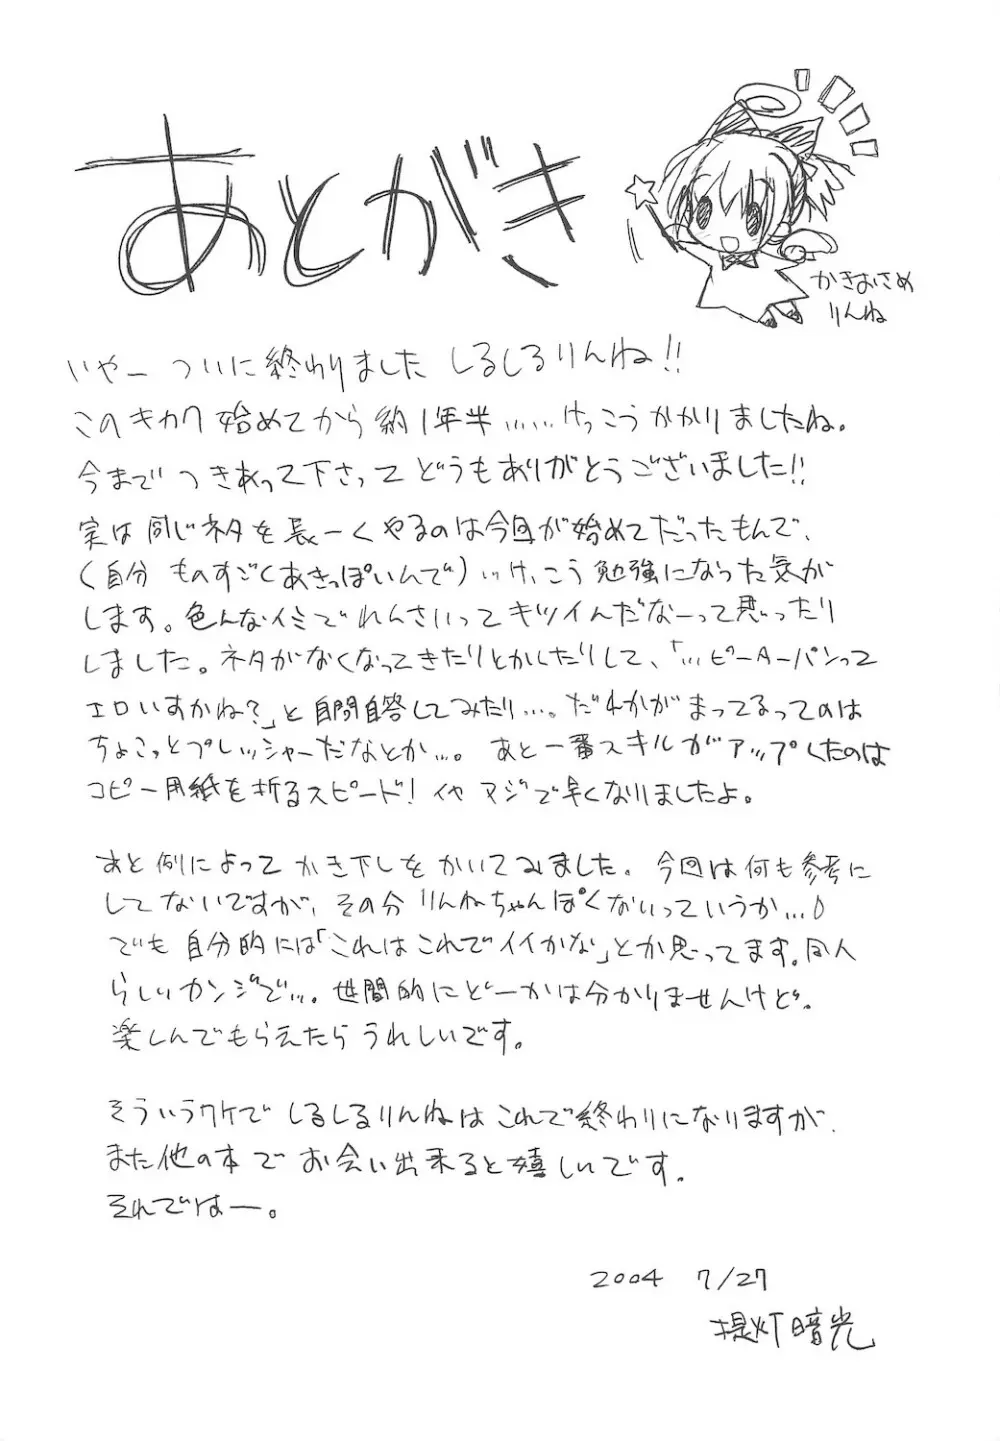 あとがき
かきおさめ
りんね
いやー ついに終わりました しるしるりんね!!
このキカク始めてから約1年半……けっこうかかりましたね。
今までつきあって下さってどうもありがとうございました!!
実は同じネタを長ーくやるのは今回が始めてだったもんで、
(自分 ものすごくあきっぽいんで)…けっこう勉強になった気が
します。色んなイミでれんさいってキツイんだなーって思ったり
しました。ネタがなくなってきたりとかしたりして、「…ピーターパンって
エロいすかね?」と自問自答してみたり…。だれかがまってるってのは
ちょこっとプレッシャーだなとか…。あと一番スキルがアップしたのは
コピー用紙を折るスピード!イヤマジで早くなりましたよ。
あと例によってかき下しをかいてみました。今回は何も参考に
してないですが、その分りんねちゃんぽくないっていうか…
でも自分的には「これはこれでイイかな」とか思ってます。同人
らしいカンジで…。世間的にどーかは分かりませんけど。
楽しんでもらえたらうれしいです。
そういうワケでしるしるりんねはこれで終わりになりますが、
また他の本でお会い出来ると嬉しいです。
それではー。
2004 7/27
提灯暗光